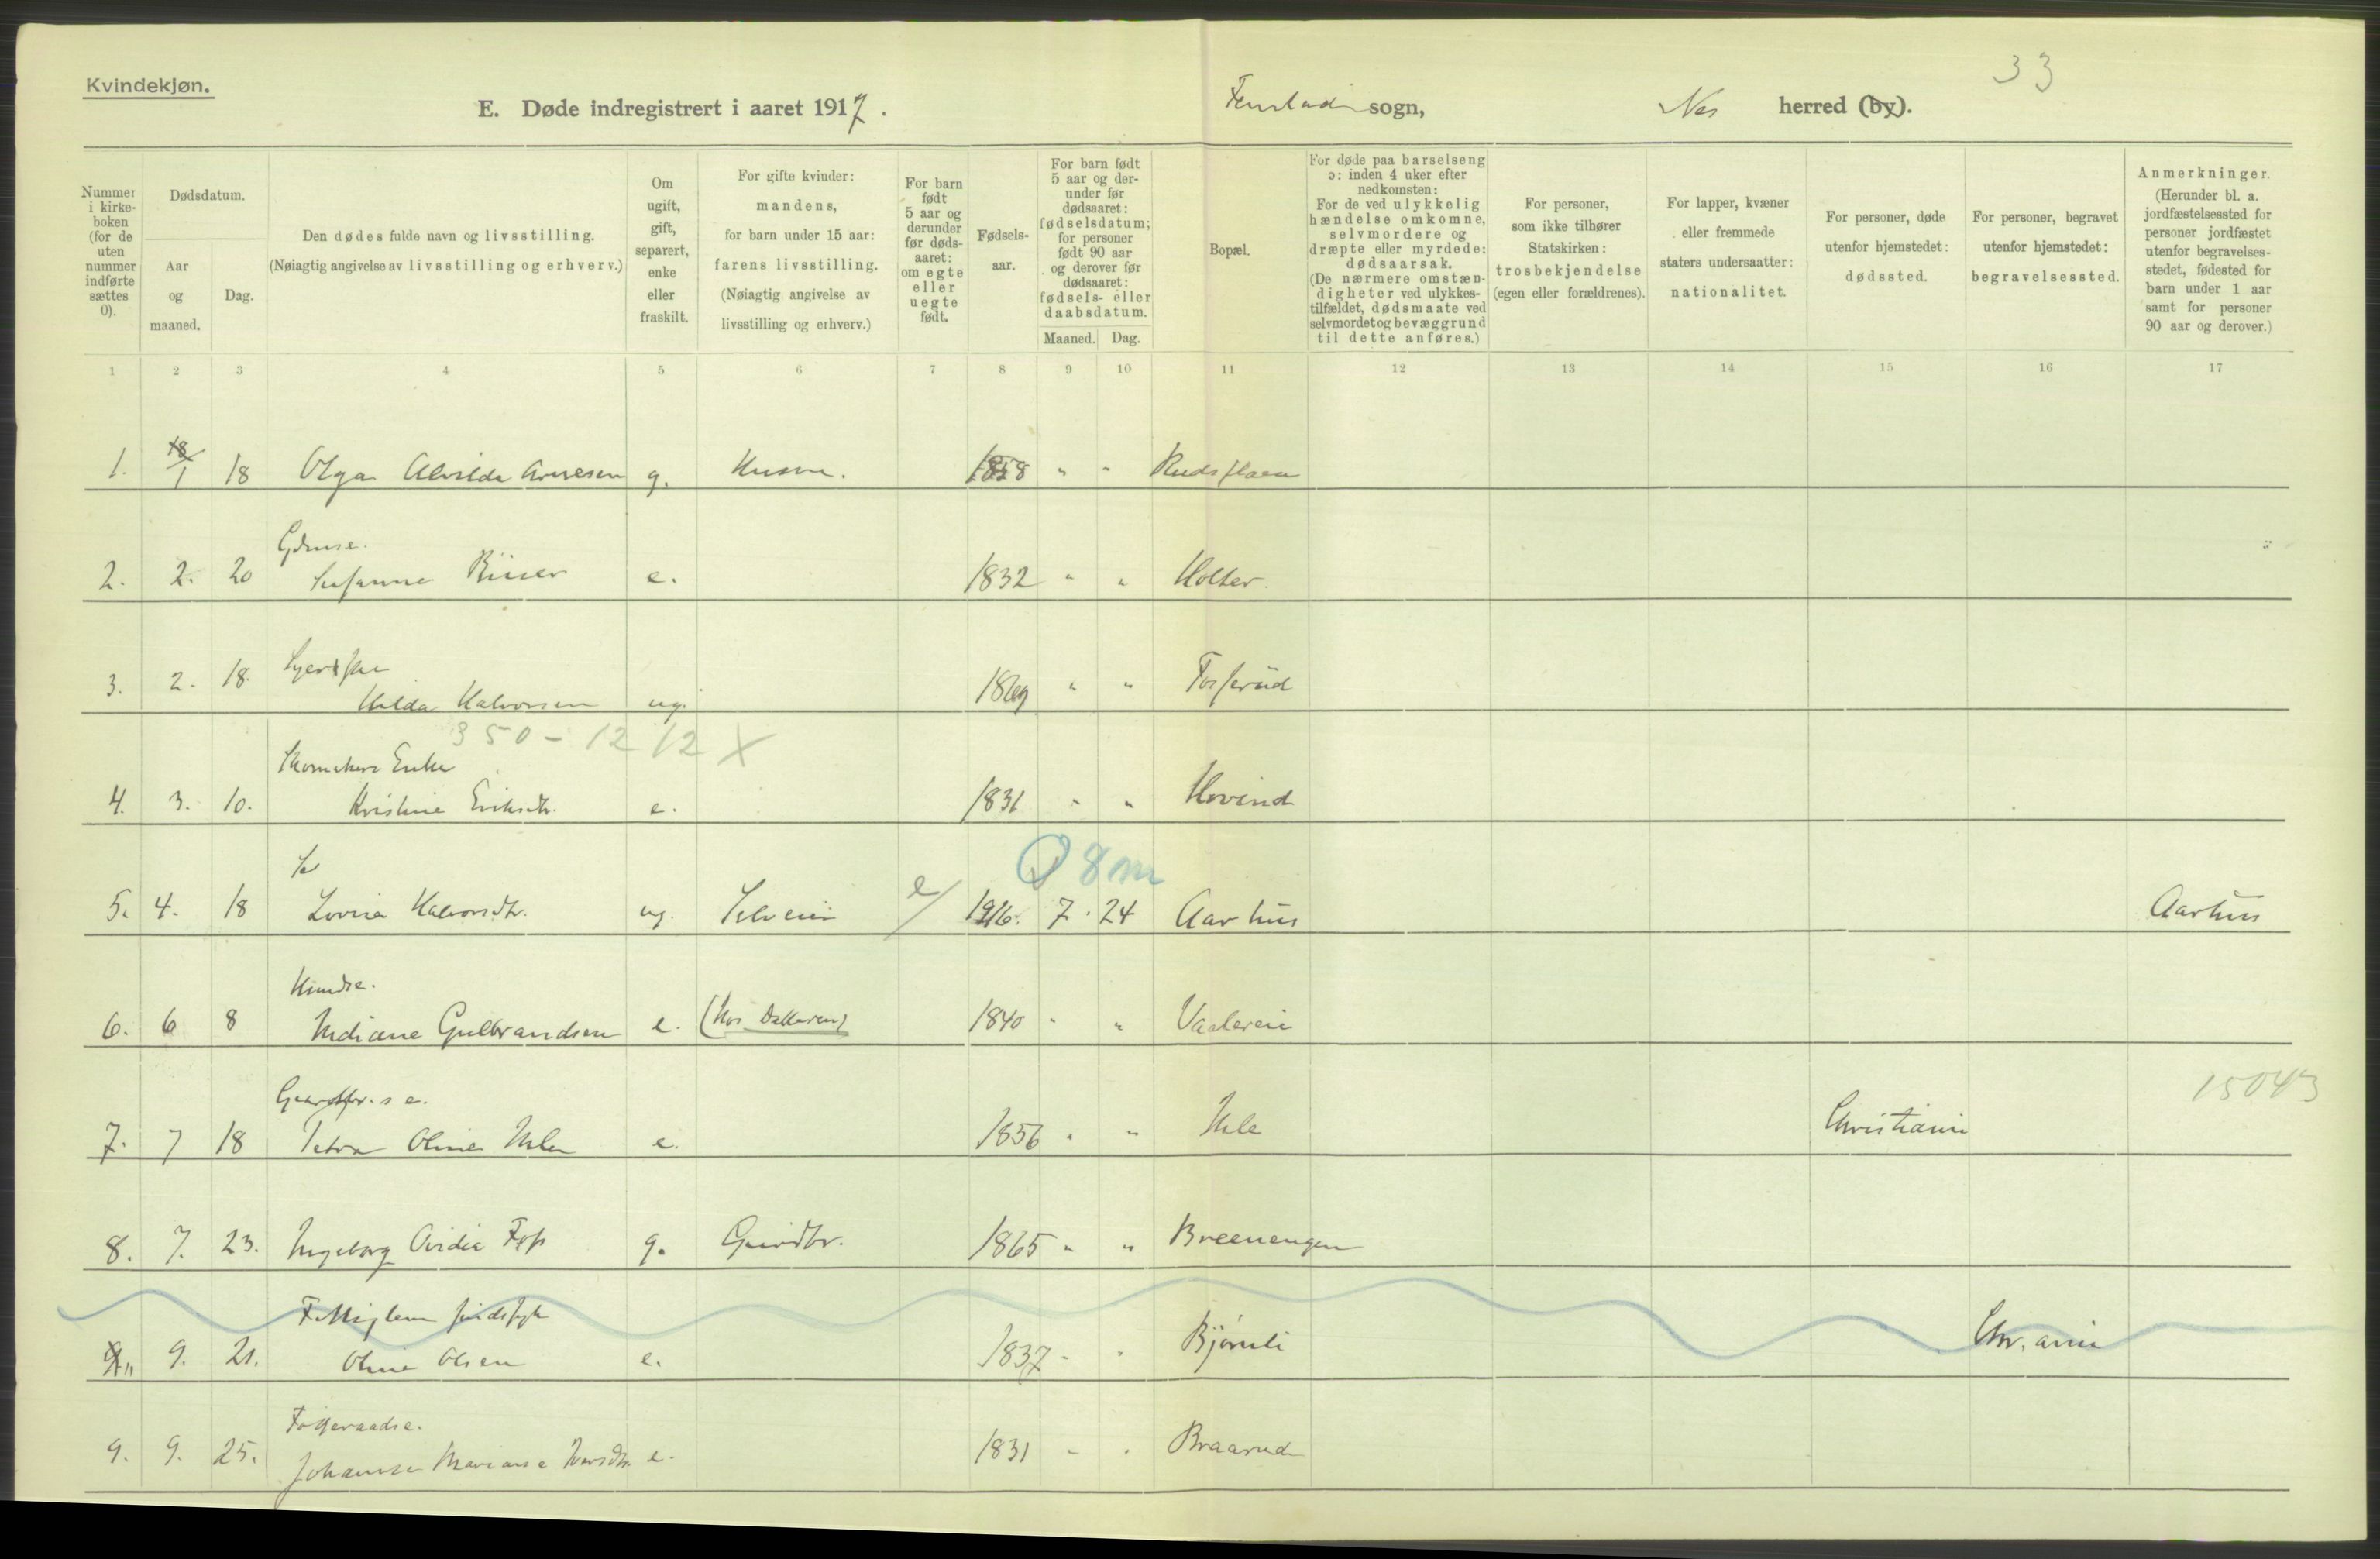 33
Kvindekjøn.
E. Døde indregistrert i aaret 1917. Fenstad sogn, Nes herred (by).
Nummer i kirkeboken (for de uten nummer indførte sættes 0).
Dødsdatum.
Aar og maaned.
Dag.
Den dødes fulde navn og livsstilling.
(Nøiagtig angivelse av livsstilling og erhverv.)
Om ugift, gift, separert, enke eller fraskilt.
For gifte kvinder: mandens, for barn under 15 aar: farens livsstilling.
(Nøiagtig angivelse av livsstilling og erhverv.)
For barn født 5 aar og derunder før dødsaaret: om egte eller uegte født.
Fødselsaar.
For barn født 5 aar og derunder før dødsaaret: fødselsdatum; for personer født 90 aar og derover før dødsaaret: fødsels- eller daabsdatum.
Maaned. Dag.
Bopæl.
For døde paa barselseng ɔ: inden 4 uker efter nedkomsten:
For de ved ulykkelig hændelse omkomne, selvmordere og dræpte eller myrdede: dødsaarsak.
(De nærmere omstændigheter ved ulykkestilfældet, dødsmaate ved selvmordet og bevæggrund til dette anføres.)
For personer, som ikke tilhører Statskirken: trosbekjendelse (egen eller forældrenes).
For lapper, kvæner eller fremmede staters undersaatter: nationalitet.
For personer, døde utenfor hjemstedet: dødssted.
For personer, begravet utenfor hjemstedet: begravelsessted.
Anmerkninger.
(Herunder bl. a. jordfæstelsessted for personer jordfæstet utenfor begravelsesstedet, fødested for barn under 1 aar samt for personer 90 aar og derover.)
1 2 3 4 5 6 7 8 9 10 11 12 13 14 15 16 17
1. 18/1 18 Olga Alvilda g. Husm. 1858 " "
2. 2. 20 e. 1832 " " Holter.
3. 2. 18. Hilda Halvorsen ug. 1869 " " Fosserud
350 - 12 12 X
Skomakers Enke
4. 3. 10. Kristine Eriksdtr. e. 1831 " " Hovind
8 m
5. 4. 18 Lovise Halvorsdtr. ug. Selveier e/ 1916. 7. 24 Aarhus Aarhus
6. 6 8 Indiane Gulbrandsen e. 1840 " " Vaalereie
15043
7. 7 18 Petra Oline Hvle e. 1856 " "
8. 7. 23. Ingeborg g. Gaardbr. 1865 " " Breenengen
9. 21. Oline Olsen e. 1837 " " Bjørnli Chr.ania
Føderaadse.
9. 9. 25. e. 1831 " " Braarud